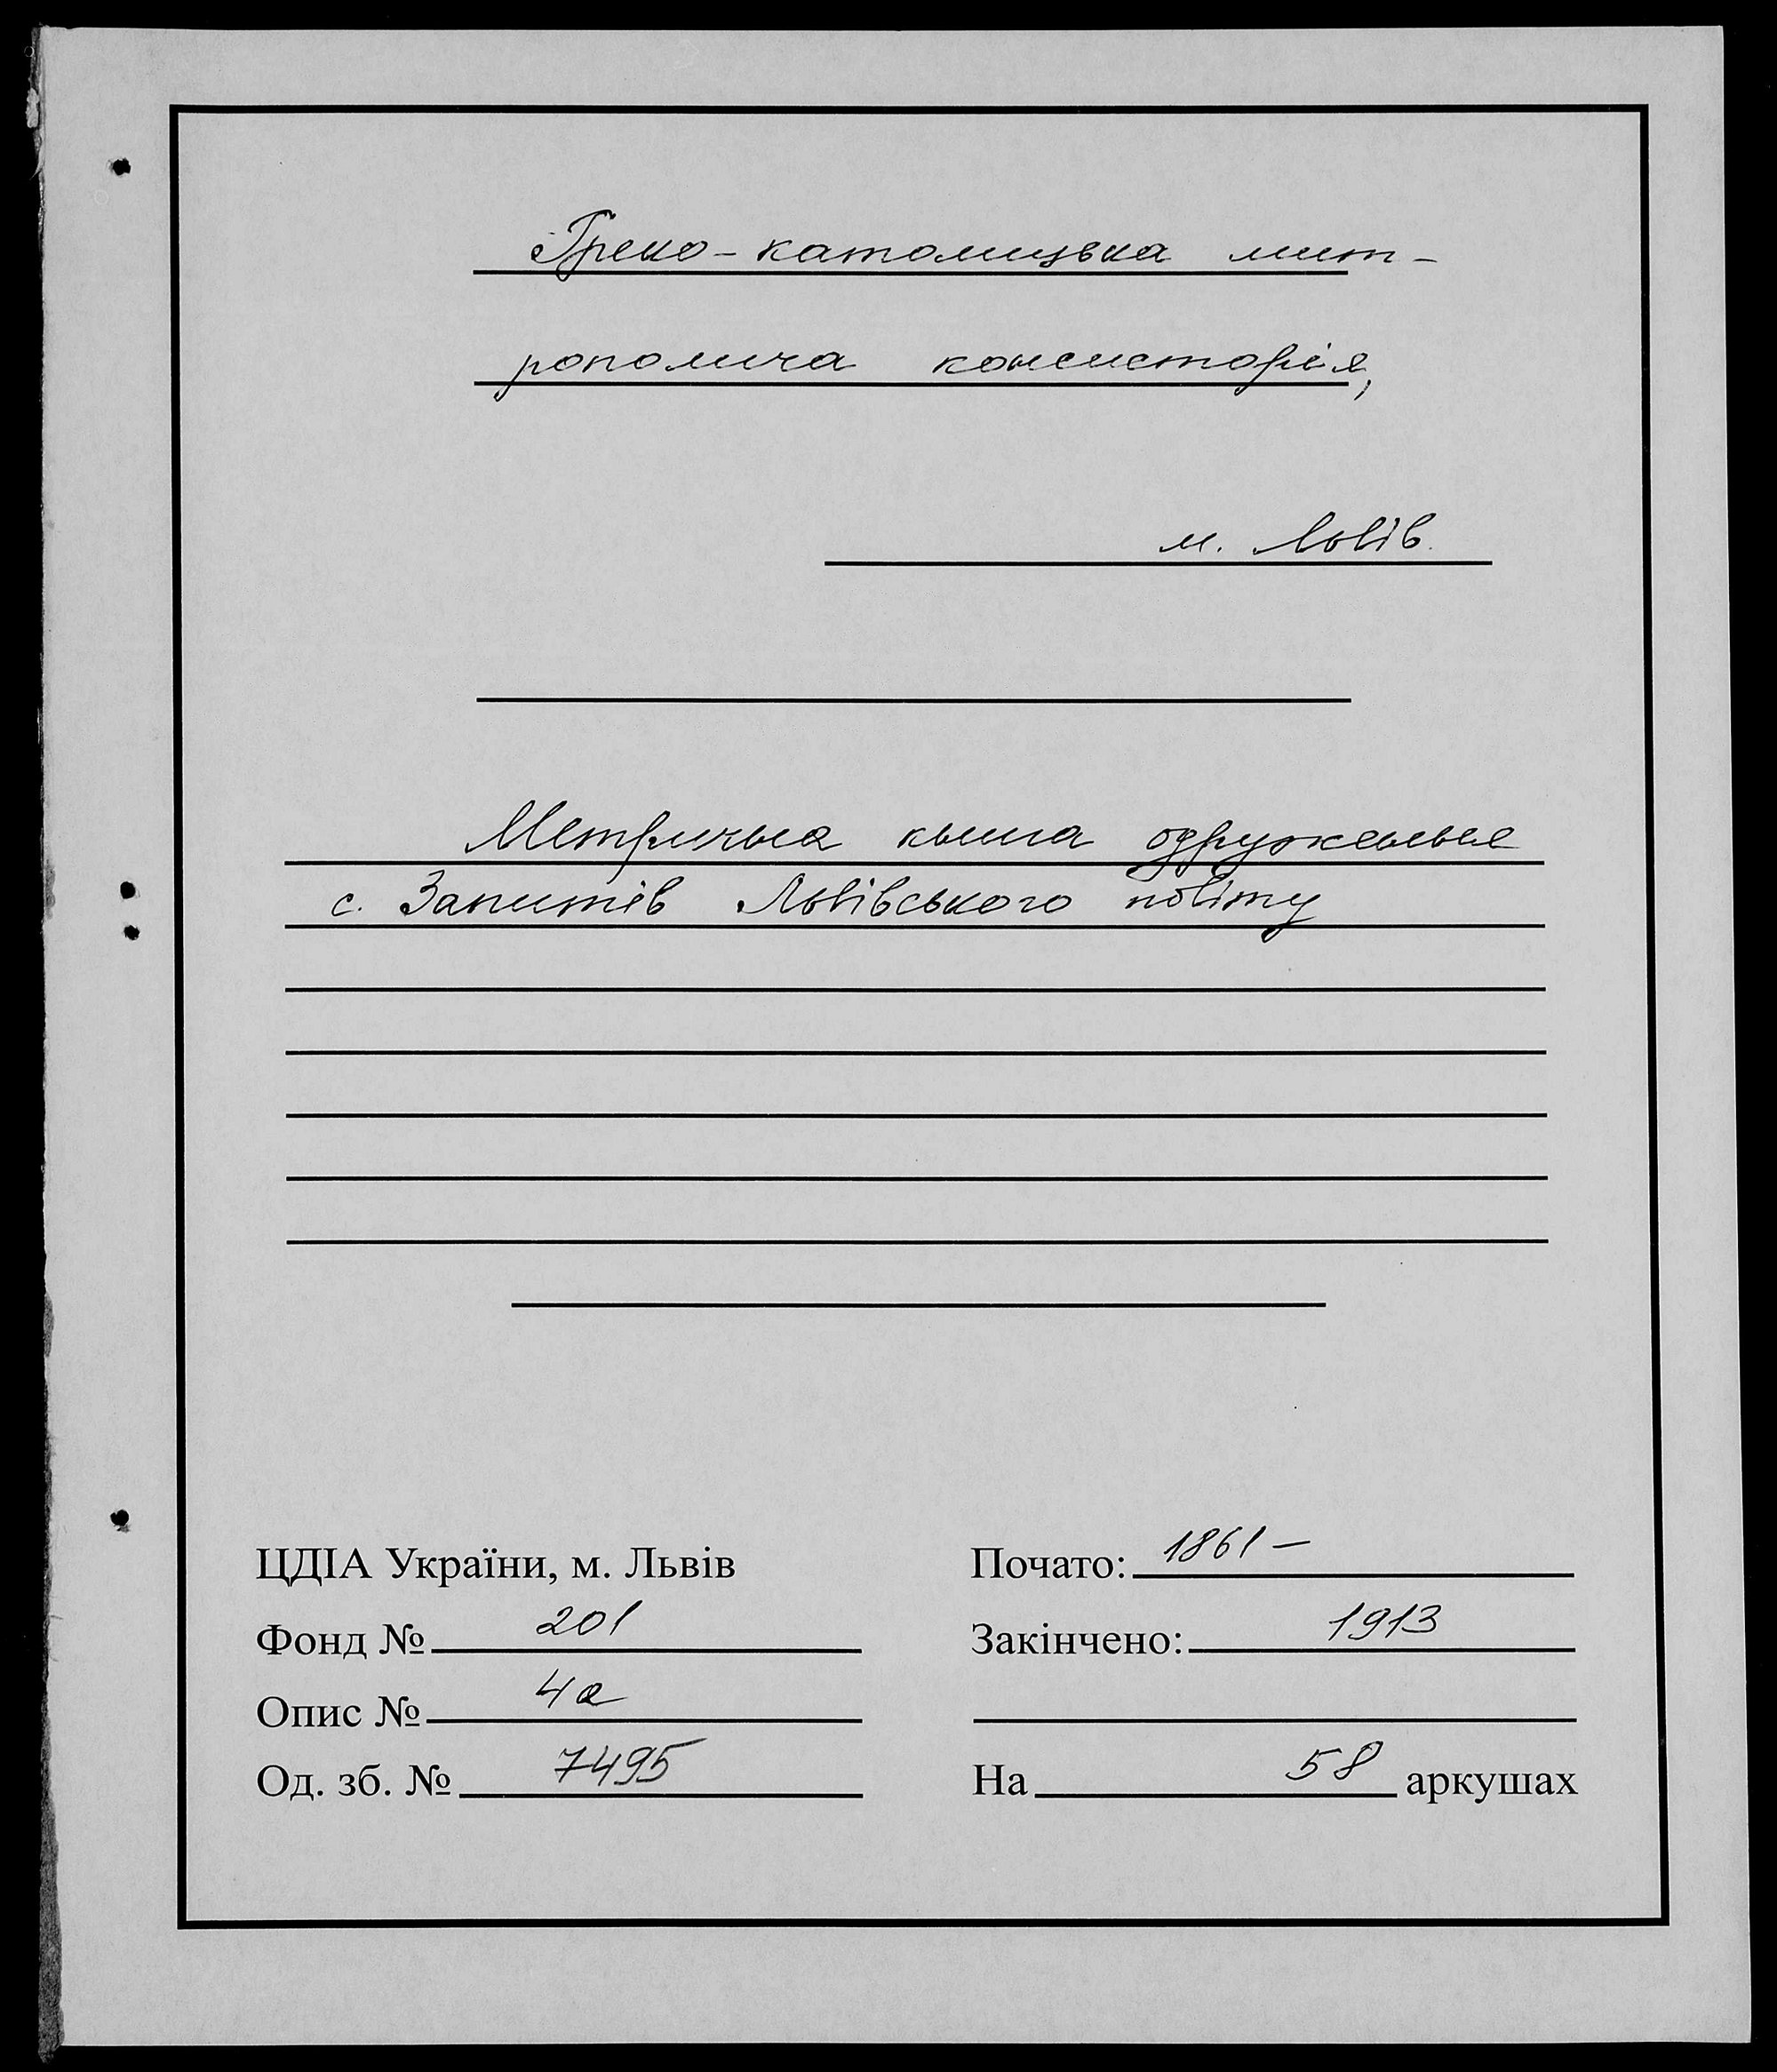 Греко-католицька мит-
рополича консисторія,
м. Львів.
Метрична книга одруження
с. Запитів Львівського повіту
ЦДІА України, м. Львів
Фонд № 201
Опис № 4а
Од. зб. № 7495
Почато: 1861 –
Закінчено: 1913
На 58 аркушах